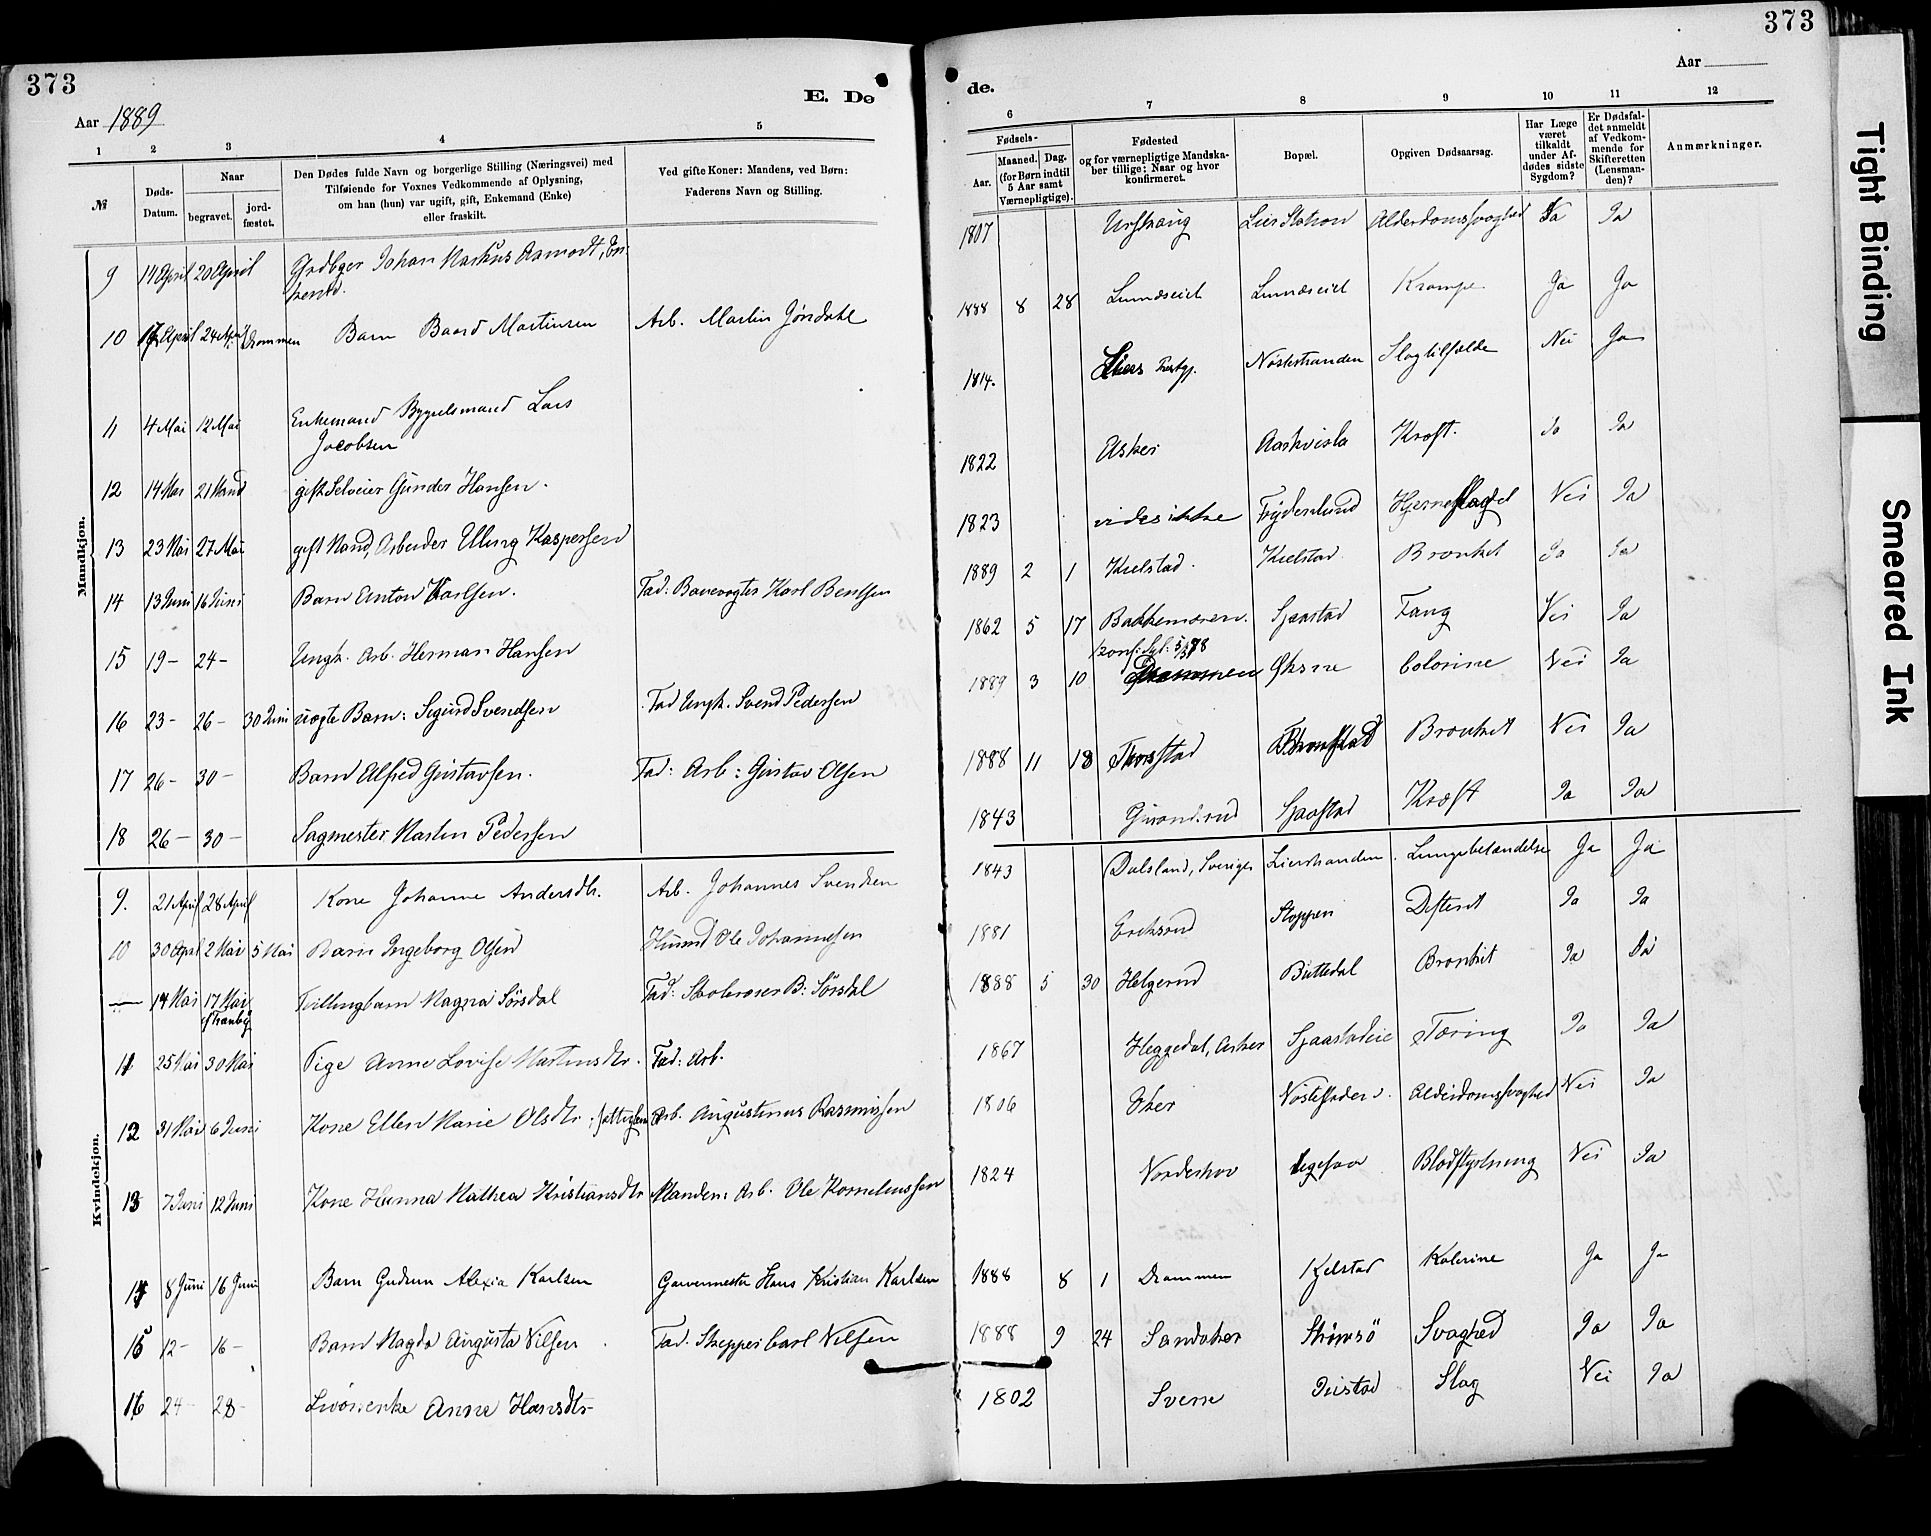 373
Aar 1889
E. Dø
1 2 3 4 5
№
Døds-Datum.
Naar
begravet.
jord-fæstet.
Den Dødes fulde Navn og borgerlige Stilling (Næringsvei) med
Tilføiende for Voxnes Vedkommende af Oplysning,
om han (hun) var ugift, gift, Enkemand (Enke)
eller fraskilt.
Ved gifte Koner: Mandens, ved Børn:
Faderens Navn og Stilling.
Mandkjøn.
9 14 April 20 April Johan Markus
10 17 April 24 Drammen Barn Baard Martinsen Arb. Martin Jøndahl
11 4 Mai 12 Mai Enkemand Bygselmand Lars
Jacobsen
12 14 Mai 21 gift Selveier Gunder Hansen.
13 23 Mai 27 Mai gift Mand, Arbeider Elling Kaspersen
14 13 Juni 16 Juni Barn Anton Karlsen. Fad: Banevogter Karl Bentsen
15 19 - 24 - Ungk. Arb. Herman Hansen
16 23 - 26 - 30 Juni uægte Barn: Sigurd Svendsen Fad Ungk. Svend Pedersen
17 26 - 30 - Barn Alfred Gustavsen. Fad: Arb: Gustav Olsen
18 26 - 30 - Sagmester Martin Pedersen
Kvindekjøn.
9. 21 April 28 April Kone Johanne Andersdtr. Arb. Johannes Svendsen
10 30 April 2 Mai 5 Mai Barn Ingeborg Olsen Ole Johannesen
— 14 Mai 17 Mai Tvillingbarn Magna Sörsdal Fad: B: Sörsdal
Tranby
11 25 Mai 30 Mai Pige Anne Lovise Martinsdtr. Fad: Arb.
12 31 Mai 6 Juni Kone Ellen Marie Olsdtr. Arb. Augustinus Rasmussen
13 7 Juni 12 Juni Kone Hanna Mathea Kristiansdtr Manden: Arb. Ole Korneliussen
14 8 Juni 16 Juni Barn Gudrun Alexia Karlsen Garvermester Hans Kristian Karlsen
15 12 - 16 - Barn Magda Augusta Nilsen Fad. Skipper Carl Nilsen
16 24 - 28 - Anne Hansdtr
373
Aar
de.
6 7 8 9 10 11 12
Fødsels-
Aar.
Maaned. Dag.
(for Børn indtil
5 Aar samt
Værnepligtige).
Fødested
og for værnepligtige Mandska-
ber tillige: Naar og hvor
konfirmeret.
Bopæl.
Opgiven Dødsaarsag.
Har Læge
været
tilkaldt
under Af-
dødes sidste
Sygdom?
Er Dødsfal-
det anmeldt
af Vedkom-
mende for
Skifteretten
(Lensman-
den)?
Anmærkninger.
1807 Urskaug Lier Station Alderdomssvaghed Ja Ja
1888 8 28 Lunnæseiet Lunnæseiet Krampe Ja Ja
1814. Liers Prestgj. Nøstestranden Slagtilfælde Nei Ja
1822 Asker Aaskvisla Kræft. Ja Ja
1823 vides ikke Frydenlund Hjerneslag Nei Ja
1889 2 1 Kjelstad. Kjelstad Bronkit Ja Ja
1862 5 17 Bakkemoren. Gjaastad Tang Nei Ja
1889 3 10 Drammen Øksne Colerine Nei Ja
1888 11 18 Thorstad Bronkit Nei Ja
1843 Gjaastad Kræft Ja Ja
1843 Dalsland, Sverige Lierstranden. Lungebetændelse Ja Ja
1881 Eriksrud Stoppen Difterit Ja Ja
1888 5 30 Helgerud Buttedal Bronkit Ja Ja
1867 Heggedal, Asker Gjaastadeie Tæring Ja Ja
1806 Alderdomssvaghed Nei Ja
1824 Norderhov Blodstyrtning Nei Ja
1888 8 1 Drammen Kjelstad Kolerine Ja Ja
1888 9 24 Sandaker Strømsö Svaghed Ja Ja
1802 Svere Slag Nei Ja
Tight Binding
Smeared Ink